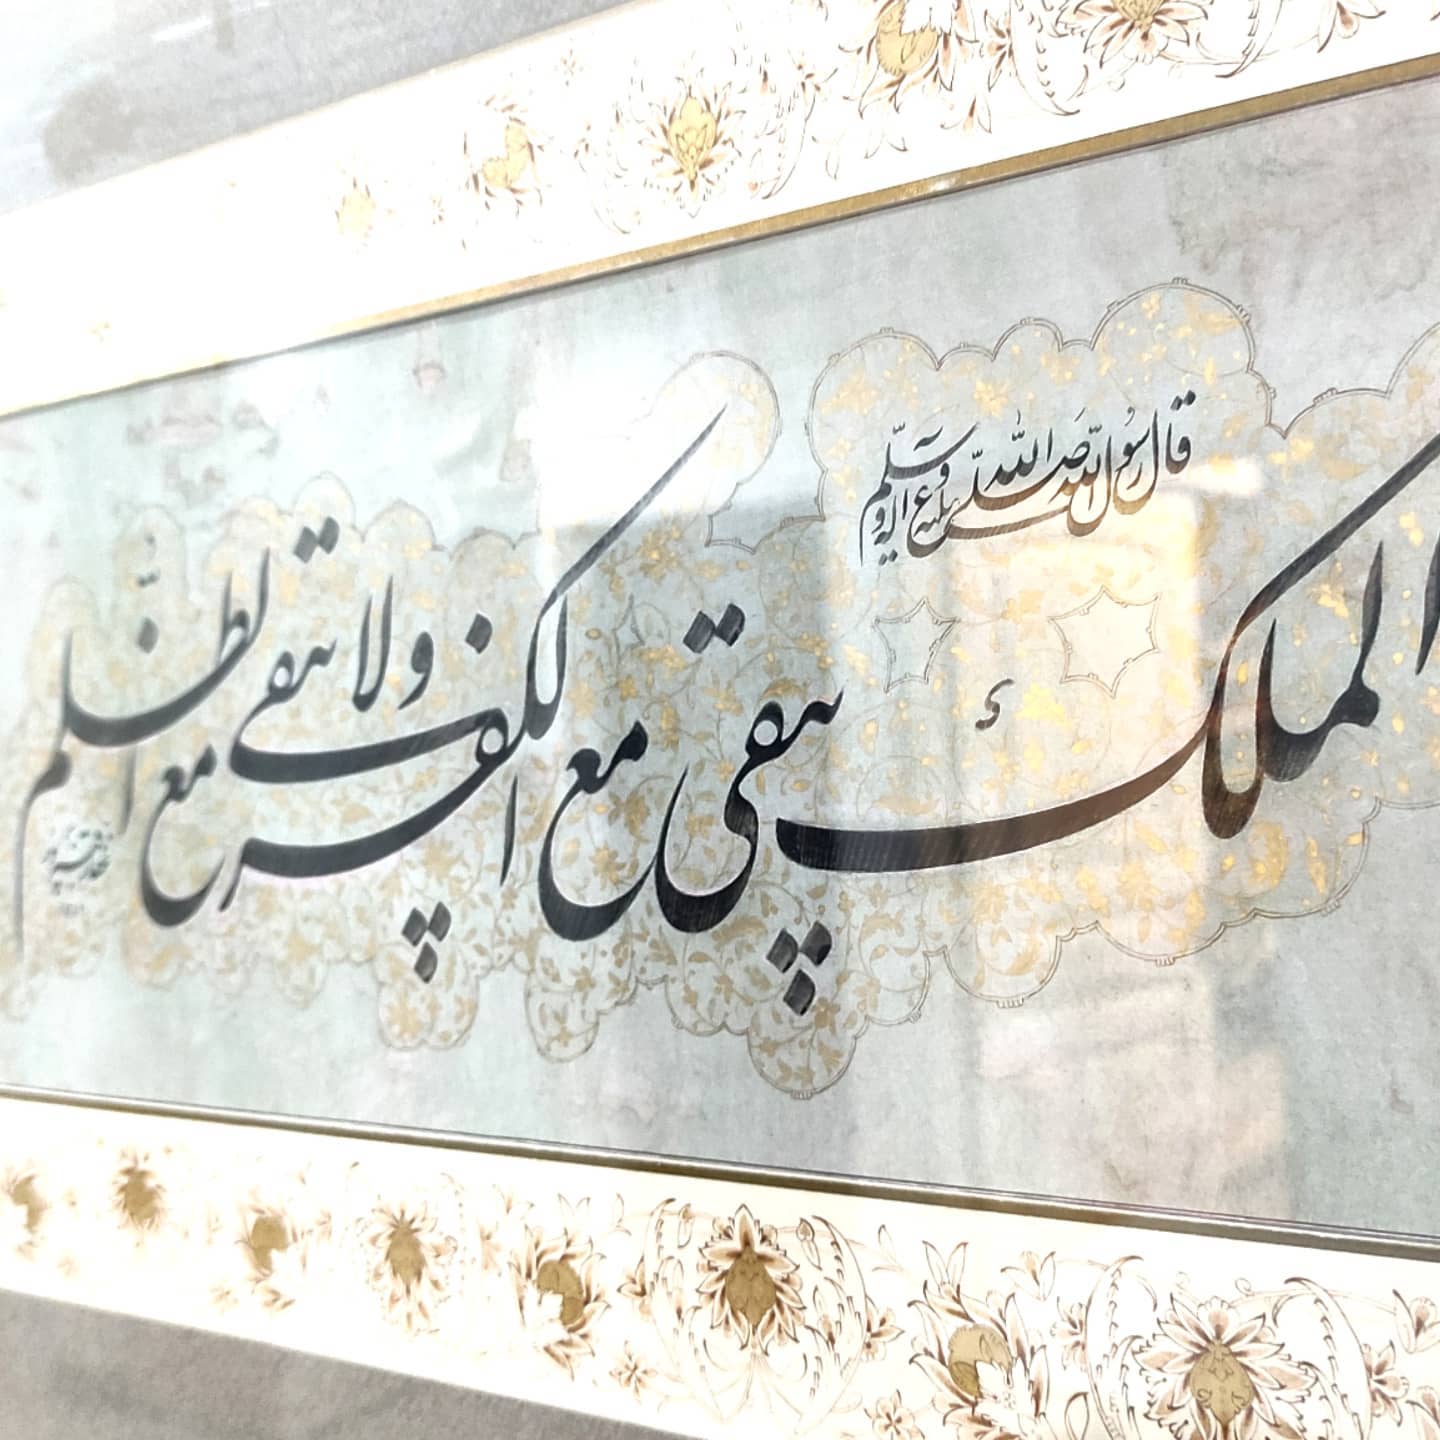 قال رسول الله صلی الله علیه و آله و سلم
الملک یبقی مع الکفر ولا یبقی مع الظلم